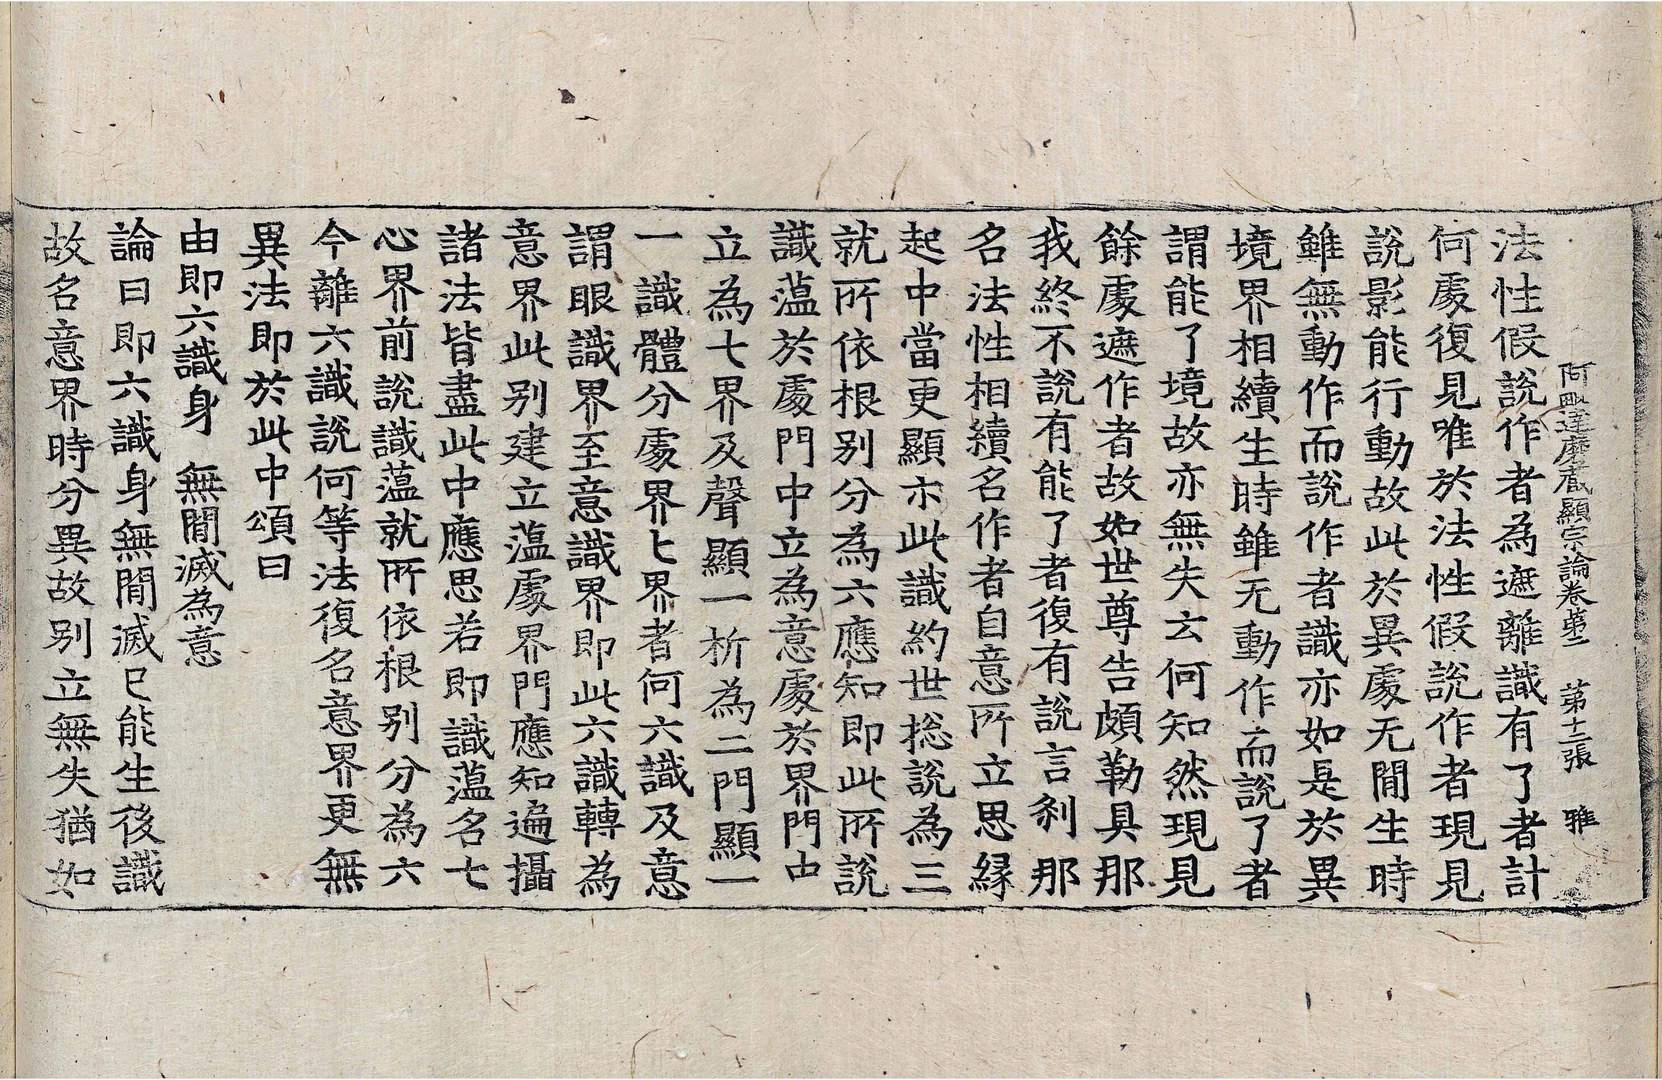 阿毗達磨藏顯宗論卷第二 第十二張 雅
法性假說作者為遮離識有了者計
何處復見唯於法性假說作者現見
說影能行動故此於異處无閒生時
雖無動作而說作者識亦如是於異
境界相續生時雖无動作而說了者
謂能了境故亦無失云何知然現見
餘處遮作者故如世尊告頗勒具那
我終不說有能了者復有說言剎那
名法性相續名作者自意所立思緣
起中當更顯示此識約世捴說為三
就所依根別分為六應知即此所說
識薀於處門中立為意處於界門中
立為七界及聲顯一析為二門顯一
一識體分處界七界者何六識及意
謂眼識界至意識界即此六識轉為
意界此別建立薀處界門應知遍攝
諸法皆盡此中應思若即識薀名七
心界前說識薀就所依根別分為六
今離六識說何等法復名意界更無
異法即於此中頌曰
由即六識身 無閒滅為意
論曰即六識身無閒滅已能生後識
故名意界時分異故別立無失猶如